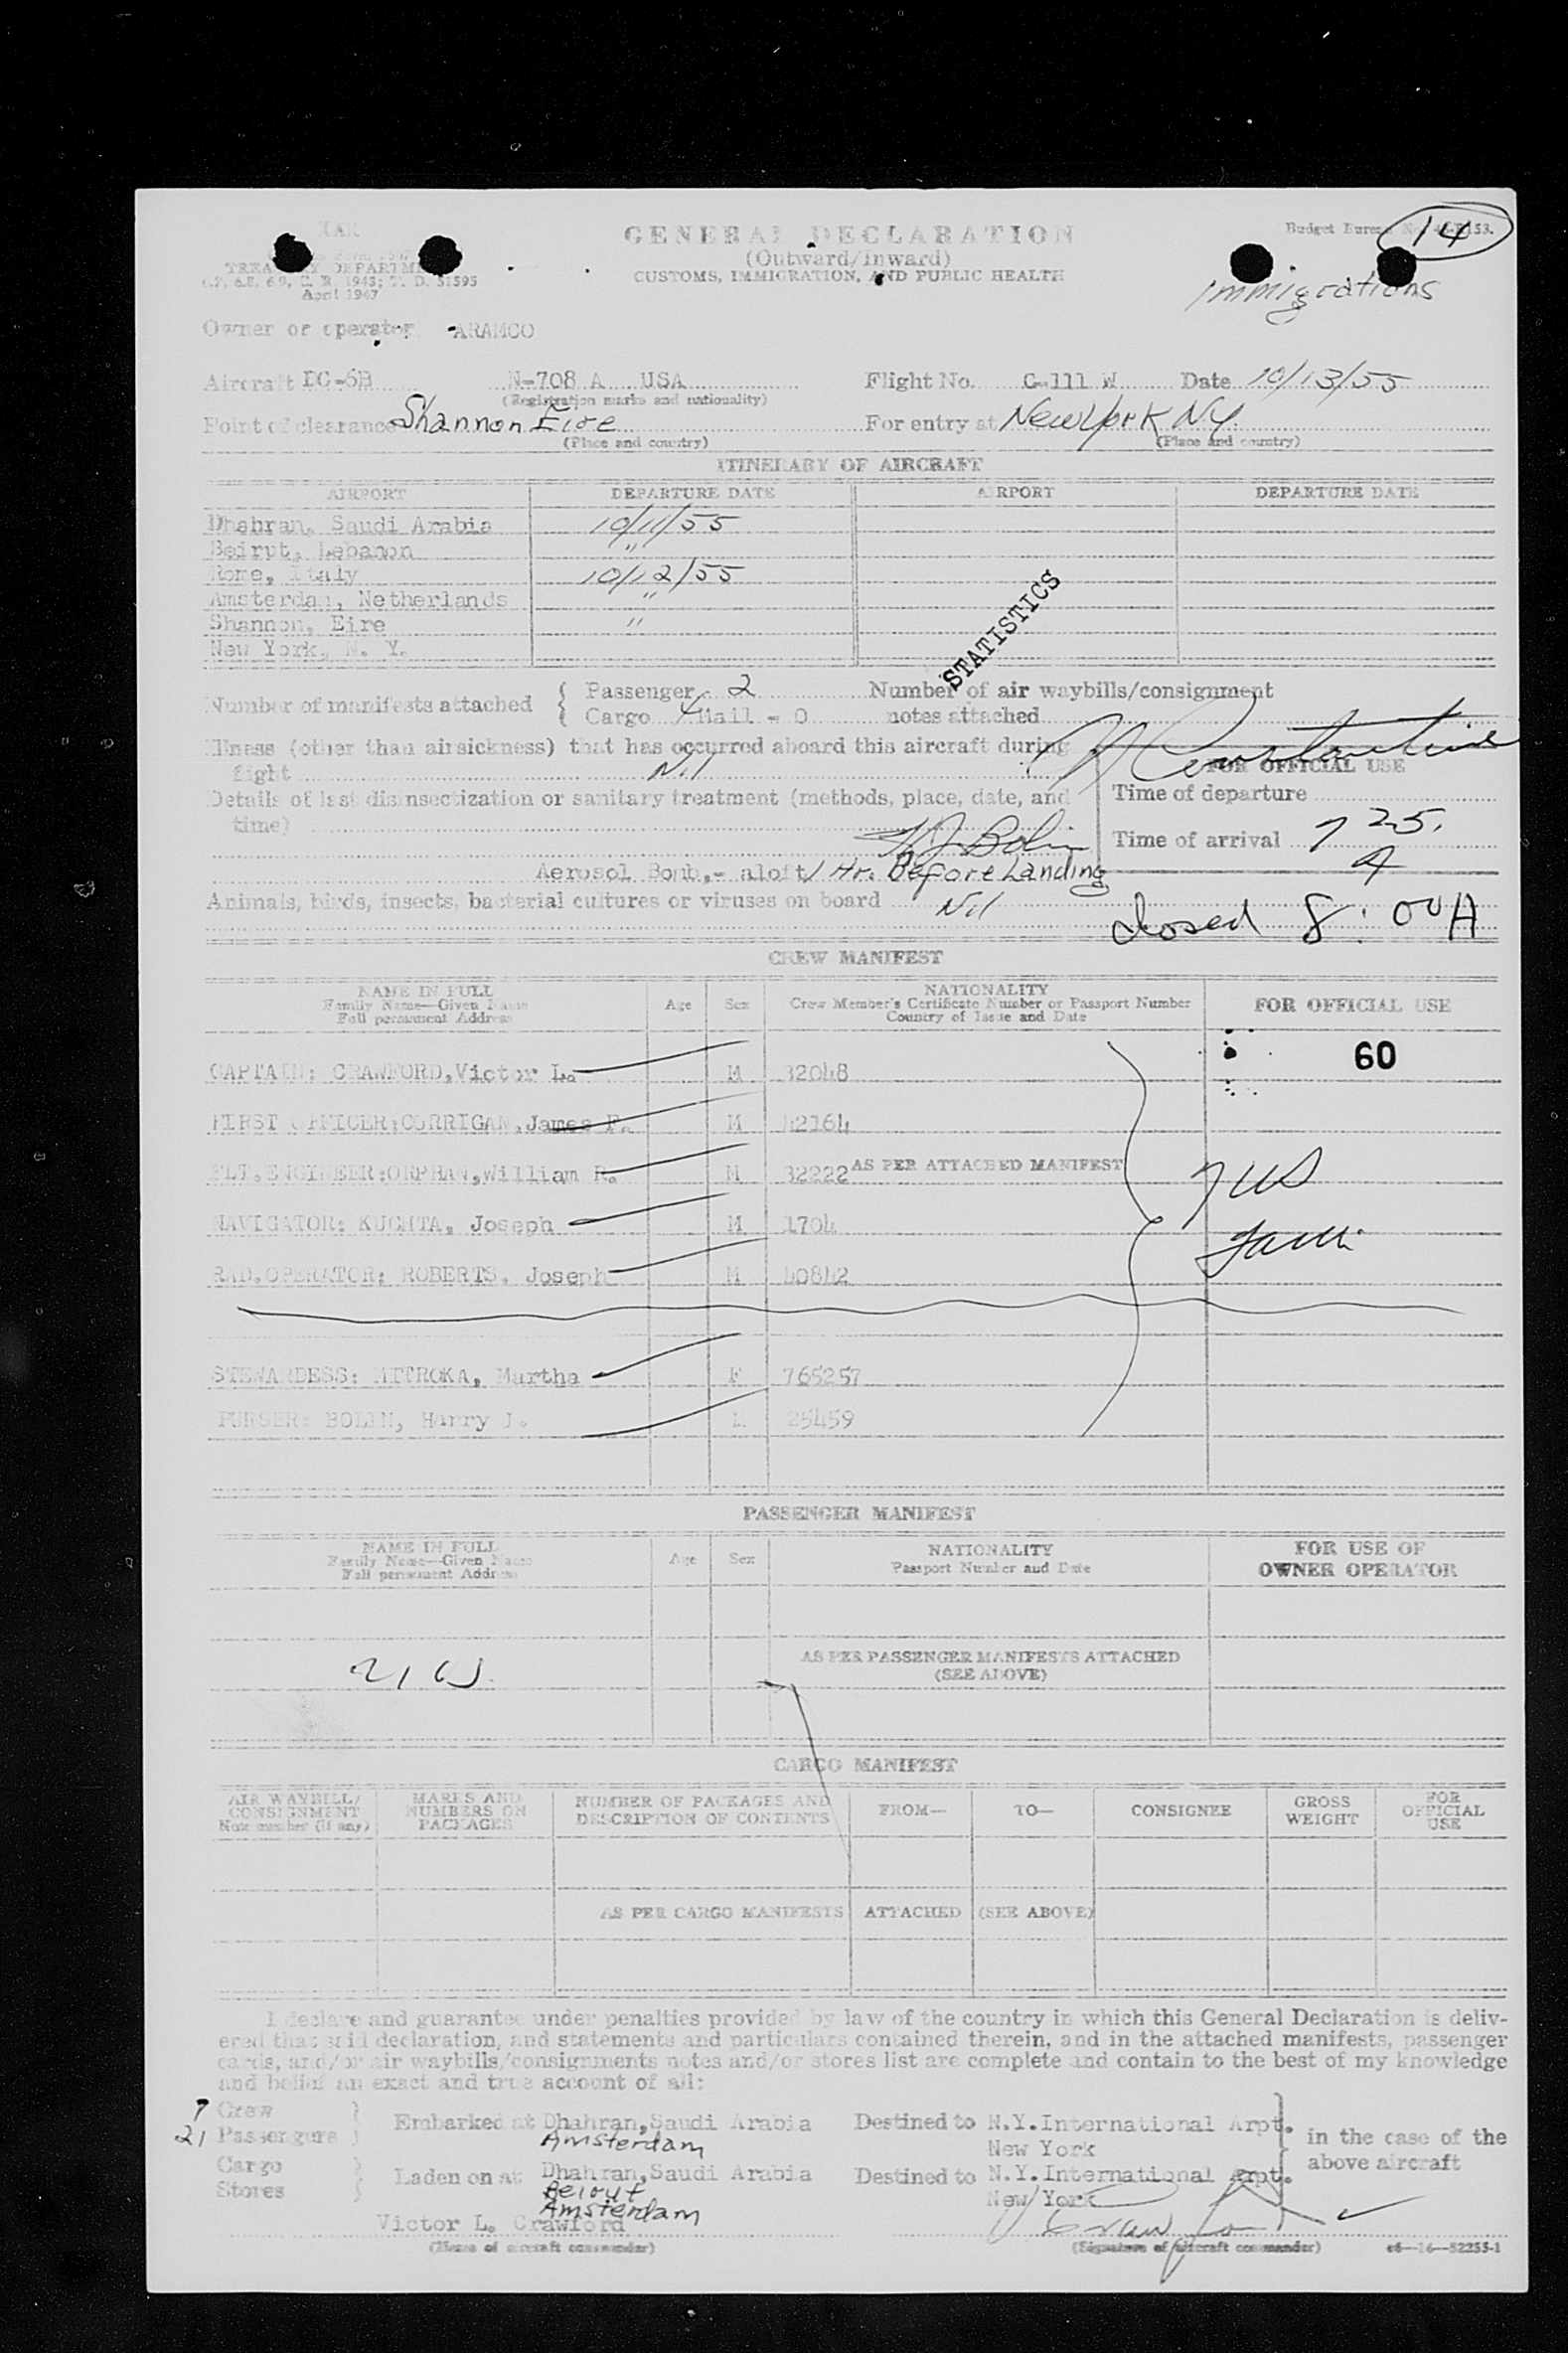 14
GENERAL DECLARATION
(Outward/Inward)
CUSTOMS, IMMIGRATION, AND PUBLIC HEALTH
Budget Bureau No.
TREASURY DEPARTMENT
April 1947
Immigrations
Owner or operator ARAMCO
Aircraft DC-6B N-708 A USA Flight No. G-111 W Date 10/13/55
(Registration marks and nationality)
Point of clearance Shannon Eire For entry at New York NY.
(Place and country) (Place and country)
ITINERARY OF AIRCRAFT
AIRPORT DEPARTURE DATE AIRPORT DEPARTURE DATE
Dhahran, Saudi Arabia 10/11/55
Beirut, Lebanon "
Rome, Italy 10/12/55
Amsterdam, Netherlands "
Shannon, Eire "
New York, N. Y.
STATISTICS
Number of manifests attached { Passenger - 2 Number of air waybills/consignment
Cargo Mail - 0 notes attached
Illness (other than airsickness) that has occurred aboard this aircraft during
flight Nil
FOR OFFICIAL USE
Details of last disinsectization or sanitary treatment (methods, place, date, and
time)
Time of departure
Time of arrival 7 25.
A
HJ Bolin
Aerosol Bomb,- aloft 1 Hr. Before Landing
Animals, birds, insects, bacterial cultures or viruses on board Nil
closed 8:00 A
CREW MANIFEST
NAME IN FULL
Family Name—Given Name
Full permanent Address
Age Sex
NATIONALITY
Crew Member's Certificate Number or Passport Number
Country of Issue and Date
FOR OFFICIAL USE
60
CAPTAIN: CRAWFORD,Victor L. M 32048
FIRST OFFICER:CORRIGAN,James F. M 42164
FLT.ENGINEER:ORPHAN,William R. M 32222 AS PER ATTACHED MANIFEST
7 US
NAVIGATOR: KUCHTA, Joseph M 1704
RAD.OPERATOR: ROBERTS, Joseph M 40842
STEWARDESS: MITROKA, Martha F 765257
PURSER: BOLIN, Harry J. 25459
PASSENGER MANIFEST
NAME IN FULL
Family Name—Given Name
Full permanent Address
Age Sex
NATIONALITY
Passport Number and Date
FOR USE OF
OWNER OPERATOR
AS PER PASSENGER MANIFESTS ATTACHED
(SEE ABOVE)
21
CARGO MANIFEST
AIR WAYBILL/
CONSIGNMENT
Note number (if any)
MARKS AND
NUMBERS ON
PACKAGES
NUMBER OF PACKAGES AND
DESCRIPTION OF CONTENTS
FROM— TO— CONSIGNEE
GROSS
WEIGHT
FOR
OFFICIAL
USE
AS PER CARGO MANIFESTS ATTACHED (SEE ABOVE)
I declare and guarantee under penalties provided by law of the country in which this General Declaration is deliv-
ered that said declaration, and statements and particulars contained therein, and in the attached manifests, passenger
cards, and/or air waybills/consignments notes and/or stores list are complete and contain to the best of my knowledge
and belief an exact and true account of all:
7 Crew } Embarked at Dhahran,Saudi Arabia Destined to N.Y.International Arpt.
21 Passengers } Amsterdam New York
in the case of the
above aircraft
Cargo } Laden on at Dhahran,Saudi Arabia Destined to N.Y.International Arpt.
Stores } Beirut New York
Amsterdam
Victor L. Crawford
(Name of aircraft commander) (Signature of aircraft commander)